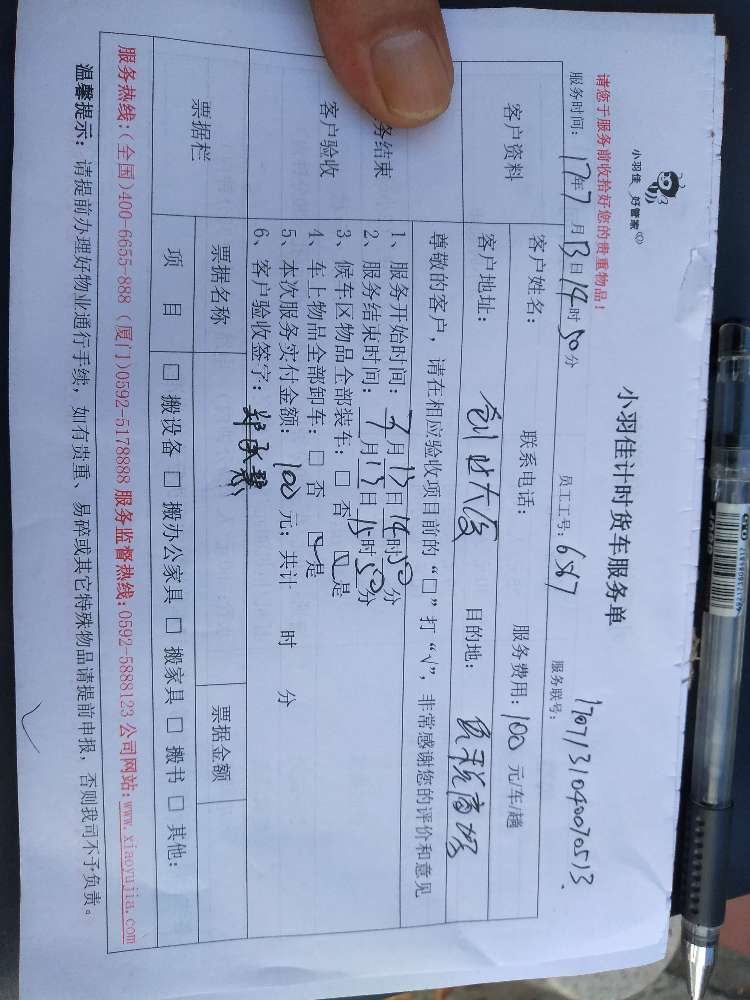 小羽佳 好管家
请您于服务前收拾好您的贵重物品！
小羽佳计时货车服务单
服务时间：17年7月13日14时50分 员工工号：687 服务联号：
客户资料
客户姓名： 联系电话： 服务费用：100 元/车/趟
客户地址：创业大厦 目的地：
务结束
客户验收
尊敬的客户，请在相应验收项目前的“□”打“√”，非常感谢您的评价和意见
1、服务开始时间：7月13日14时50分
2、服务结束时间：7月13日15时50分
3、候车区物品全部装车：□ 否 ☑是
4、车上物品全部卸车：□ 否 ☑是
5、本次服务实付金额：100 元；共计 时 分
6、客户验收签字：
票据栏 票据名称 票据金额
项 目 □ 搬设备 □ 搬办公家具 □ 搬家具 □ 搬书 □ 其他：
服务热线：(全国)400-6655-888 (厦门)0592-5178888 服务监督热线：0592-5888123 公司网站：www.xiaoyujia.com
温馨提示：请提前办理好物业通行手续，如有贵重、易碎或其它特殊物品请提前申报，否则我司不予负责。